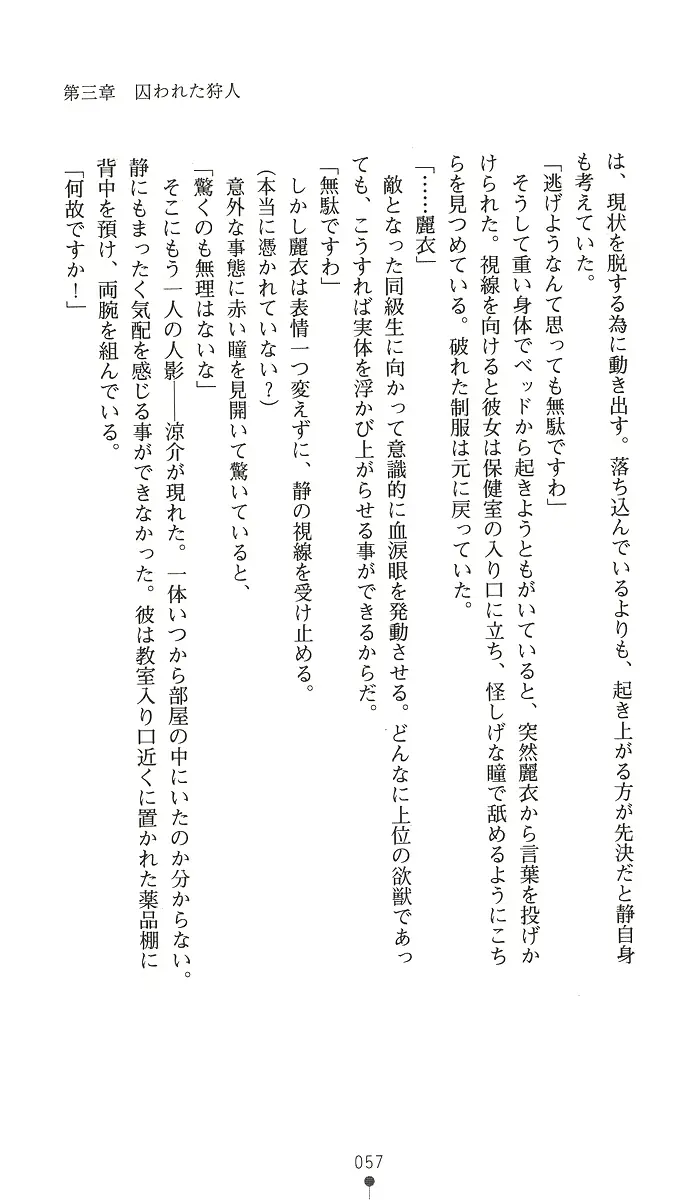 第三章　囚われた狩人
は、現状を脱する為に動き出す。落ち込んでいるよりも、起き上がる方が先決だと静自身
も考えていた。
「逃げようなんて思っても無駄ですわ」
そうして重い身体でベッドから起きようともがいていると、突然麗衣から言葉を投げか
けられた。視線を向けると彼女は保健室の入り口に立ち、怪しげな瞳で舐めるようにこち
らを見つめている。破れた制服は元に戻っていた。
「……麗衣」
敵となった同級生に向かって意識的に血涙眼を発動させる。どんなに上位の欲獣であっ
ても、こうすれば実体を浮かび上がらせる事ができるからだ。
「無駄ですわ」
しかし麗衣は表情一つ変えずに、静の視線を受け止める。
（本当に憑かれていない？）
意外な事態に赤い瞳を見開いて驚いていると、
「驚くのも無理はないな」
そこにもう一人の人影――涼介が現れた。一体いつから部屋の中にいたのか分からない。
静にもまったく気配を感じる事ができなかった。彼は教室入り口近くに置かれた薬品棚に
背中を預け、両腕を組んでいる。
「何故ですか！」
057